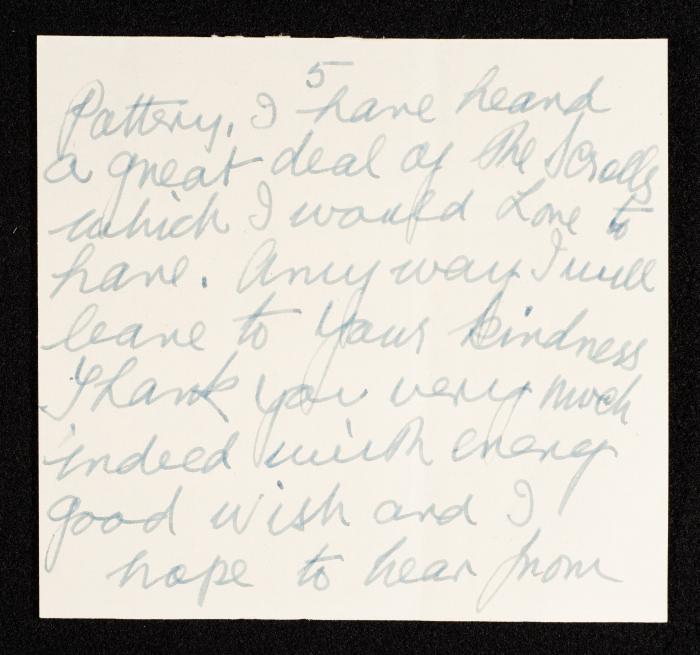 5
Pottery, I have heard
a great deal of The Scrolls
which I would Love to
have. Any way I will
leave to your kindness
Thank you very much
indeed with every
good wish and I
hope to hear from